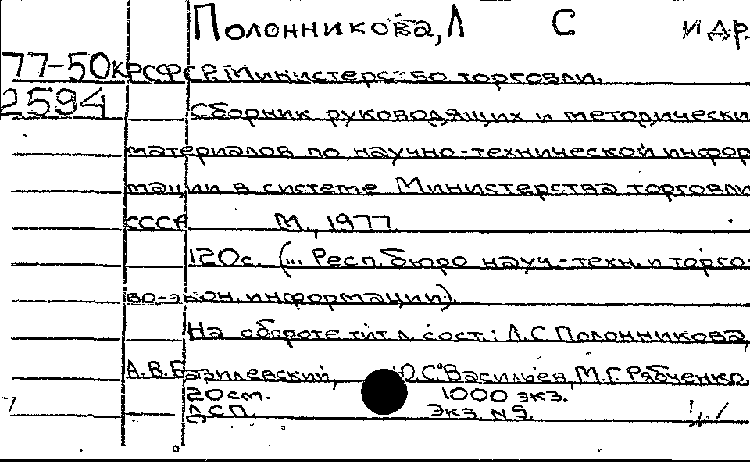 Полонникова, Л С и др.
77-50к РСФСР. Министерство торговли.
2594 Сборник руководящих и методически
материалов по научно-технической инфор
мации в системе Министерства торговли
СССР М., 1977.
120с. (... Респ. бюро науч.-техн. и торго-
во-экон. информации).
На обороте тит. л. сост.: Л.С Полонникова,
А.В. Базилевский, Ю.С. Васильев, М.Г. Рябченко.
20см. 1000 экз.
ДСП. Экз. № 9.